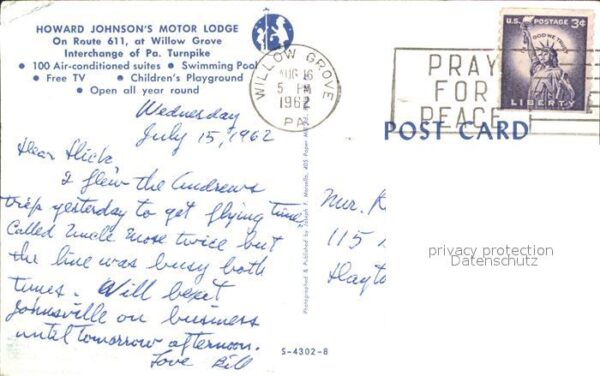 HOWARD JOHNSON'S MOTOR LODGE
On Route 611, at Willow Grove
Interchange of Pa. Turnpike
• 100 Air-conditioned suites • Swimming Pool
• Free TV • Children's Playground
• Open all year round
WILLOW GROVE
AUG 16
5 PM
1962
PA.
PRAY
FOR
PEACE
U.S. POSTAGE 3¢
IN GOD WE TRUST
LIBERTY
POST CARD
Wednesday
July 15, 1962
Dear Hick,
I flew the Andrews
trip yesterday to get flying time.
Called Uncle Mose twice but
the line was busy both
times. Will be at
Johnsville on business
until tomorrow afternoon.
Love Bill
115
Dayto
privacy protection
Datenschutz
Photographed & Published by
S-4302-8